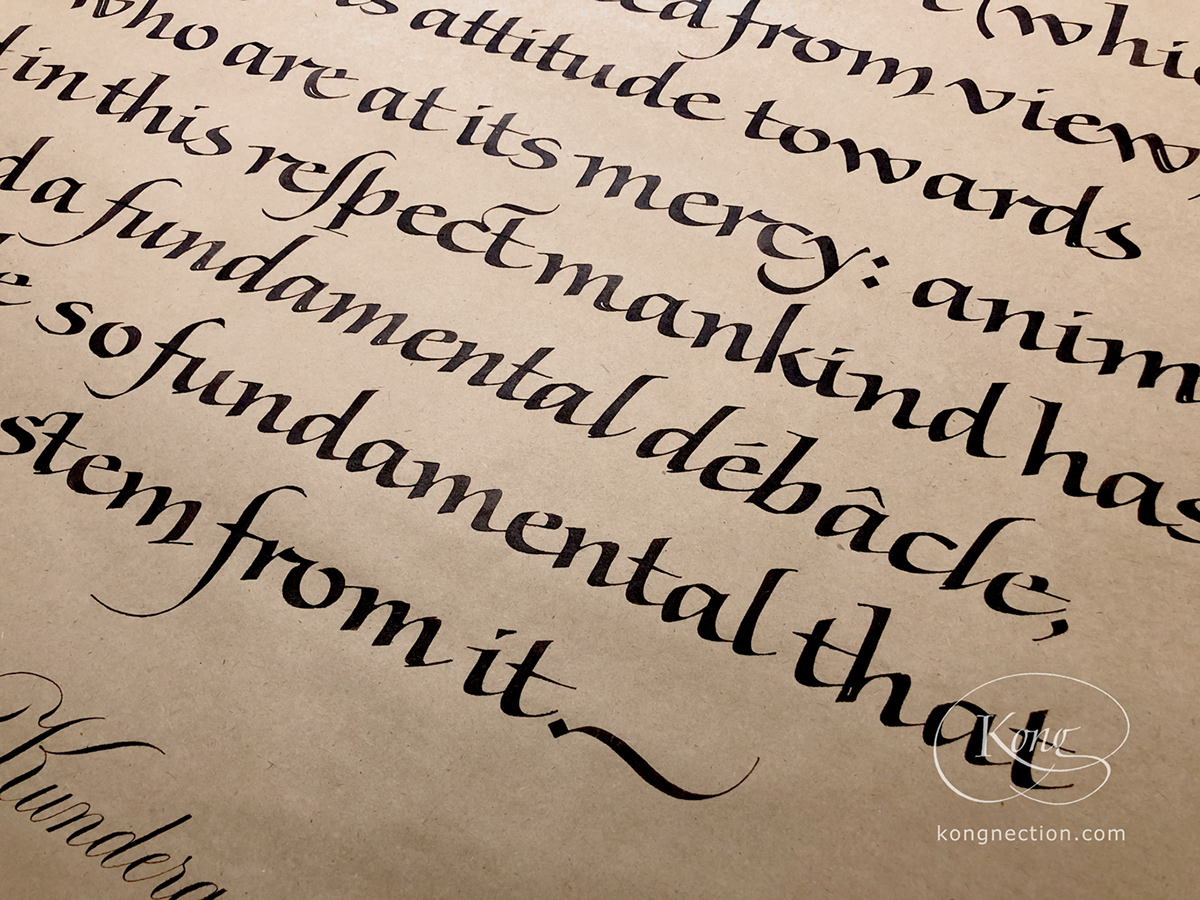 (whic
ed from view,
s attitude towards
who are at its mercy: anim
in this reſpect mankind has
d a fundamental débâcle,
e so fundamental that
stem from it.
Kundera
Kong
kongnection.com